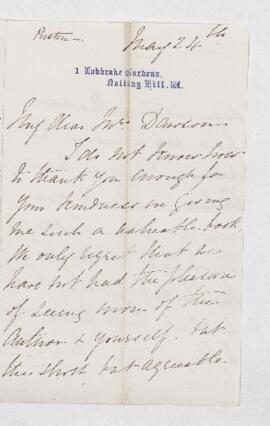 Preston
May 24th
1 Ladbroke Gardens,
Notting Hill. W.
My dear Mrs Dawson
I do not know how
to thank you enough for
your kindness in giving
me such a valuable book.
We only regret that we
have not had the pleasure
of seeing more of the
Author & yourself. but
the short, but agreeable